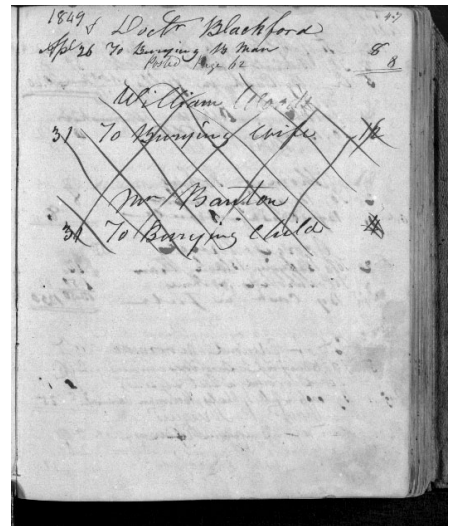 1849
Doctr Blackford
Apl 26 To Burying B Man 8
Posted Page 62 8
William
31 To Burying Wife 16
Mr Banton
31 To Burying Child 4